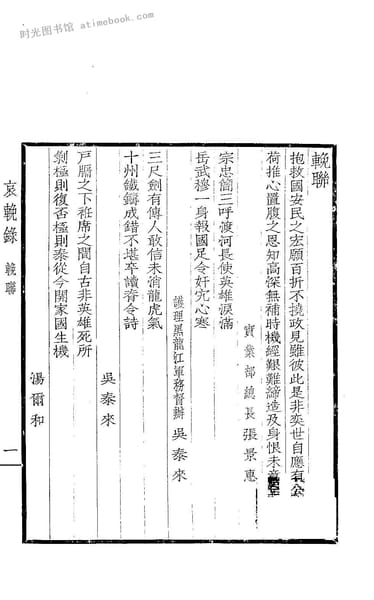 时光图书馆 - atimebook.com
輓聯
抱救國安民之宏願百折不撓政見雖彼此是非奕世自應有公
荷推心置腹之恩知高深無補時機經艱難締造及身恨未竟
實業部總長張景惠
宗忠簡三呼渡河長使英雄淚滿
岳武穆一身報國足令奸宄心寒
護理黑龍江軍務督辦吳泰來
三尺劍有傳人敢信未消龍虎氣
十州鐵鑄成錯不堪卒讀香令詩
吳泰來
戸牖之下袵席之間自古非英雄死所
剝極則復否極則泰從今開家國生機
湯爾和
哀輓錄
輓聯
一